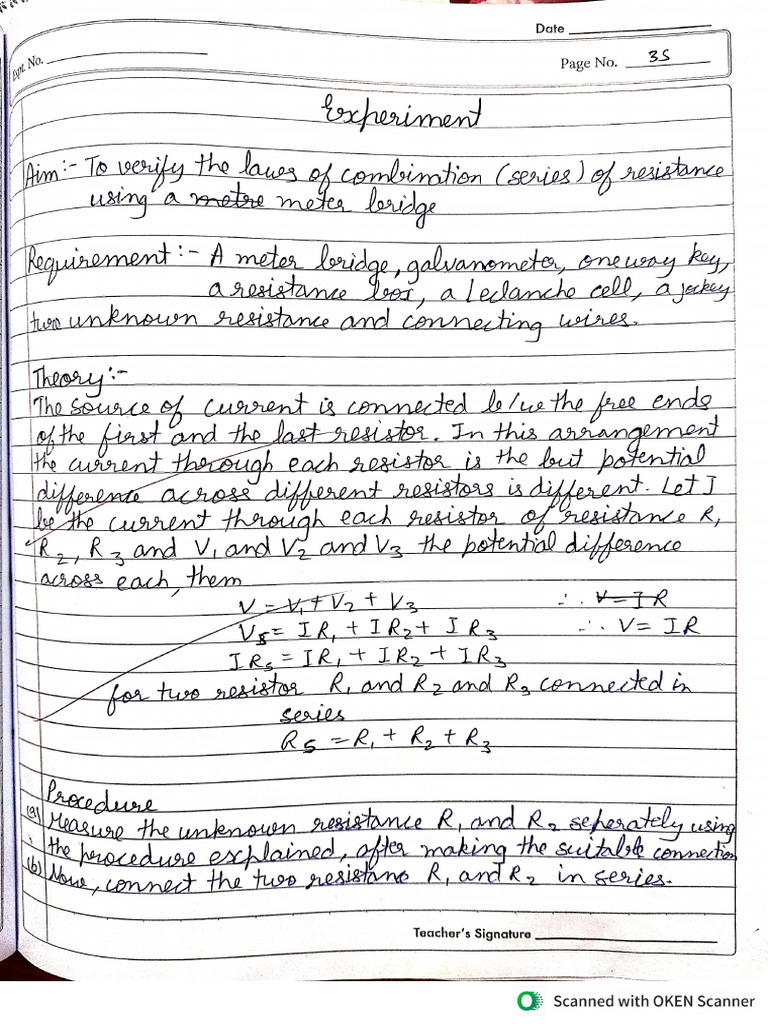 Date
Expt. No.
Page No. 35
Experiment
Aim:- To verify the laws of combination (series) of resistance
using a metre meter bridge
Requirement:- A meter bridge, galvanometer, one way key,
a resistance box, a Leclanche cell, a jockey
two unknown resistance and connecting wires.
Theory:-
The source of current is connected b/w the free ends
of the first and the last resistor. In this arrangement
the current through each resistor is the but potential
difference across different resistors is different. Let I
be the current through each resistor of resistance R,
R2, R3 and V1 and V2 and V3 the potential difference
across each, them
V = V1 + V2 + V3 ∴ V=IR
Vs = IR1 + IR2 + IR3 ∴ V= IR
IRs = IR1 + IR2 + IR3
for two resistor R1 and R2 and R3 connected in
series
Rs = R1 + R2 + R3
Procedure
(a) Measure the unknown resistance R1 and R2 seperately using
the procedure explained, after making the suitable connection
(b) Now, connect the two resistane R1 and R2 in series.
Teacher's Signature
Scanned with OKEN Scanner